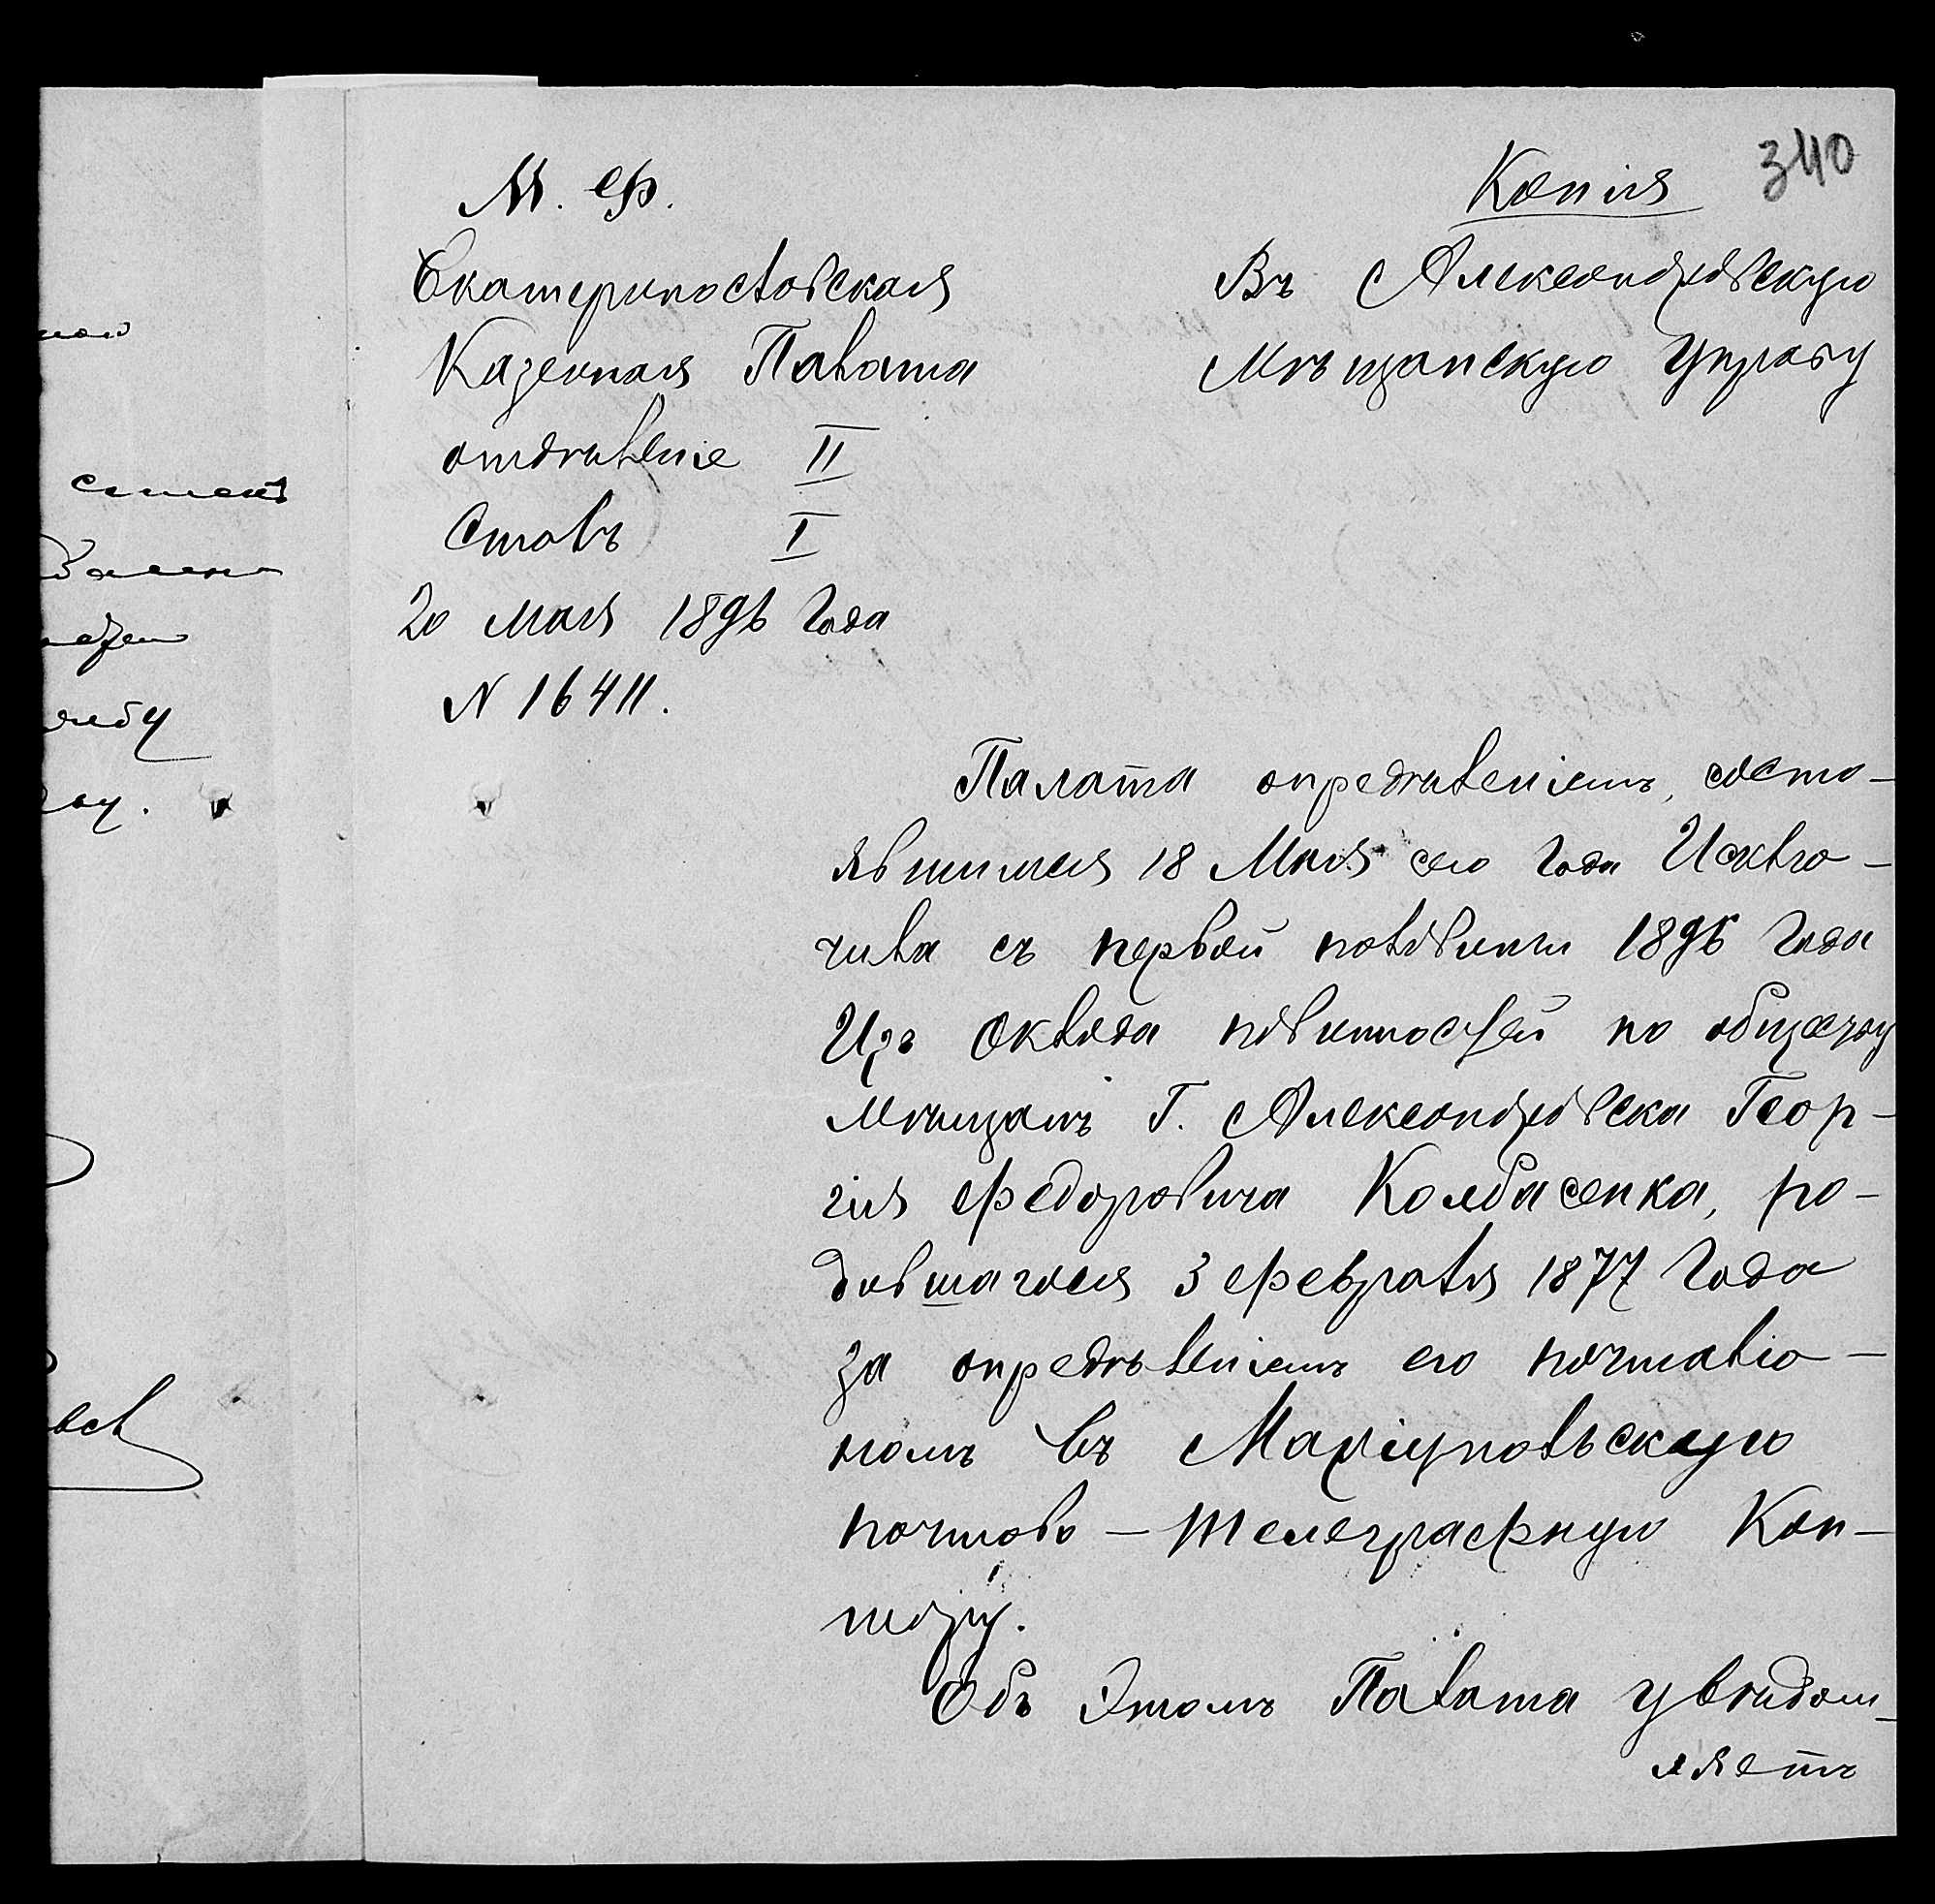 340
Копія
М. Ф.
Екатеринославская
Казенная Палата
отдѣленіе II
Столъ I
20 Мая 1896 Года
N 16411.
Въ Александровскую
Мѣщанскую Управу
Палата опредѣленіемъ, состо-
явшимся 18 Мая сего Года Исклю-
чила съ первой половины 1896 Года
Изъ Оклада повинностей по обществу
Мѣщанъ Г. Александровска Геор-
гія Федоровича Колбасенка, ро-
дившагося 3 Февраля 1877 Года
за опредѣленіемъ его почталіо-
номъ въ Маріупольскую
почтово-телеграфную Кон-
тору.
Объ Этомъ Палата увѣдом-
ляетъ